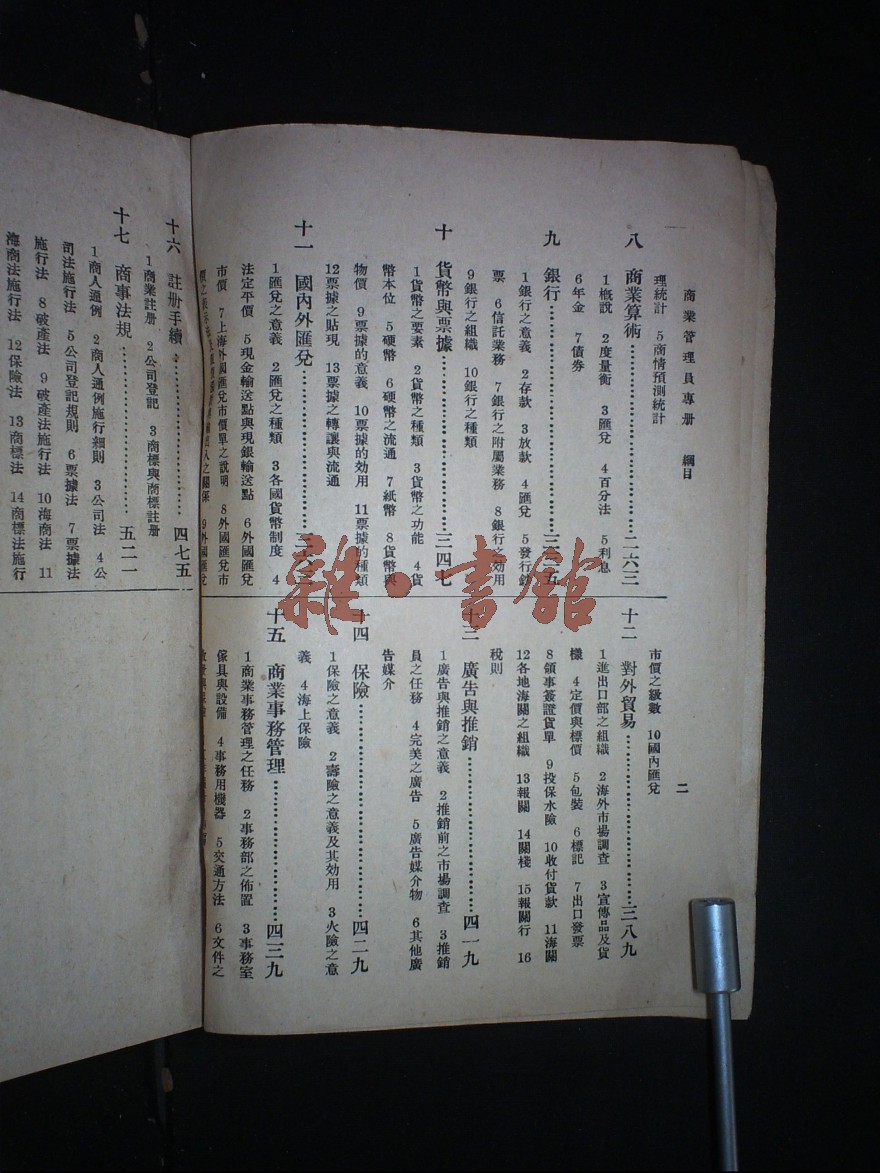 商業管理員專册　綱目
二
理統計　5商情預測統計
八　商業算術……二六三
1槪說　2度量衡　3匯兌　4百分法　5利息
6年金　7債券
九　銀行……三二五
1銀行之意義　2存款　3放款　4匯兌　5發行鈔
票　6信託業務　7銀行之附屬業務　8銀行之効用
9銀行之組織　10銀行之種類
十　貨幣與票據……三四七
1貨幣之要素　2貨幣之種類　3貨幣之功能　4貨
幣本位　5硬幣　6硬幣之流通　7紙幣　8貨幣與
物價　9票據的意義　10票據的効用　11票據的種類
12票據之貼現　13票據之轉讓與流通
十一　國內外匯兌……三
1匯兌之意義　2匯兌之種類　3各國貨幣制度　4
法定平價　5現金輸送點與現銀輸送點　6外國匯兌
市價　7上海外國匯兌市價單之說明　8外國匯兌市
出入之關係　9外國匯兌
市價之級數　10國內匯兌
十二　對外貿易……三八九
1進出口部之組織　2海外市場調查　3宣傳品及貨
樣　4定價與標價　5包裝　6標記　7出口發票
8領事簽證貨單　9投保水險　10收付貨款　11海關
12各地海關之組織　13報關　14關棧　15報關行　16
稅則
十三　廣告與推銷……四一九
1廣告與推銷之意義　2推銷前之市場調查　3推銷
員之任務　4完美之廣告　5廣告媒介物　6其他廣
告媒介
十四　保險……四二九
1保險之意義　2壽險之意義及其効用　3火險之意
義　4海上保險
十五　商業事務管理……四三九
1商業事務管理之任務　2事務部之佈置　3事務室
傢具與設備　4事務用機器　5交通方法　6文件之
十六　註册手續……四七五
1商業註册　2公司登記　3商標與商標註册
十七　商事法規……五二一
1商人通例　2商人通例施行細則　3公司法　4公
司法施行法　5公司登記規則　6票據法　7票據法
施行法　8破產法　9破產法施行法　10海商法　11
海商法施行法　12保險法　13商標法　14商標法施行
雜·書館